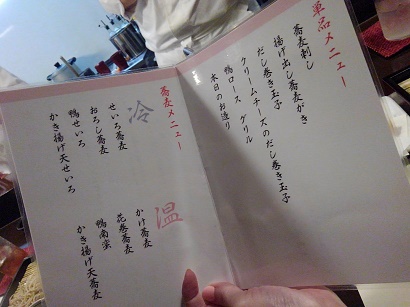 単品メニュー
蕎麦刺し
揚げ出し蕎麦がき
だし巻き玉子
クリームチーズのだし巻き玉子
鴨ロース グリル
本日のお造り
蕎麦メニュー
冷
せいろ蕎麦
おろし蕎麦
鴨せいろ
かき揚げ天せいろ
温
かけ蕎麦
花巻蕎麦
鴨南蛮
かき揚げ天蕎麦